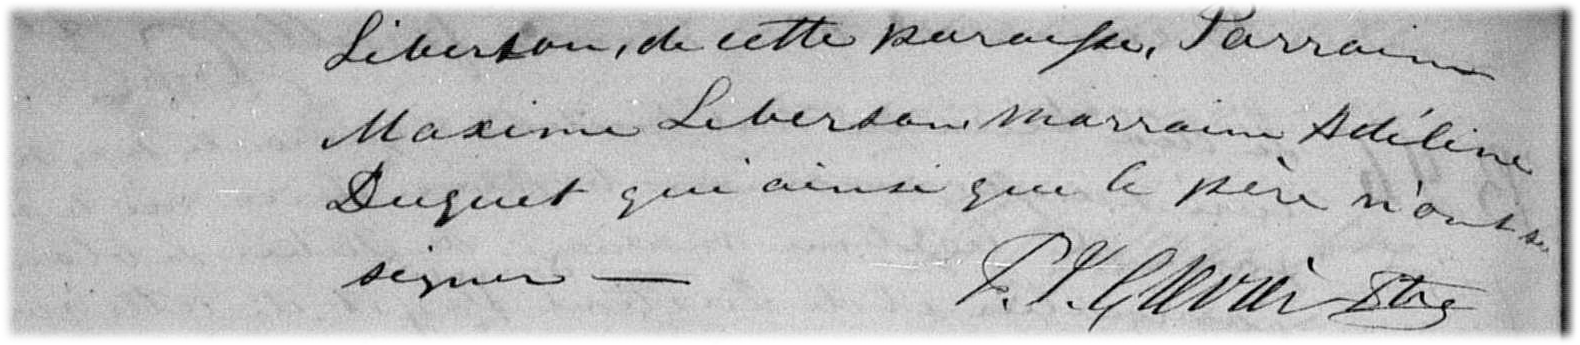 Liberson, de cette paroisse, Parrain
Maxime Leberson Marraine Adéline
Duguet qui ainsi que le père n'ont su
signer —
P. V. Ptre